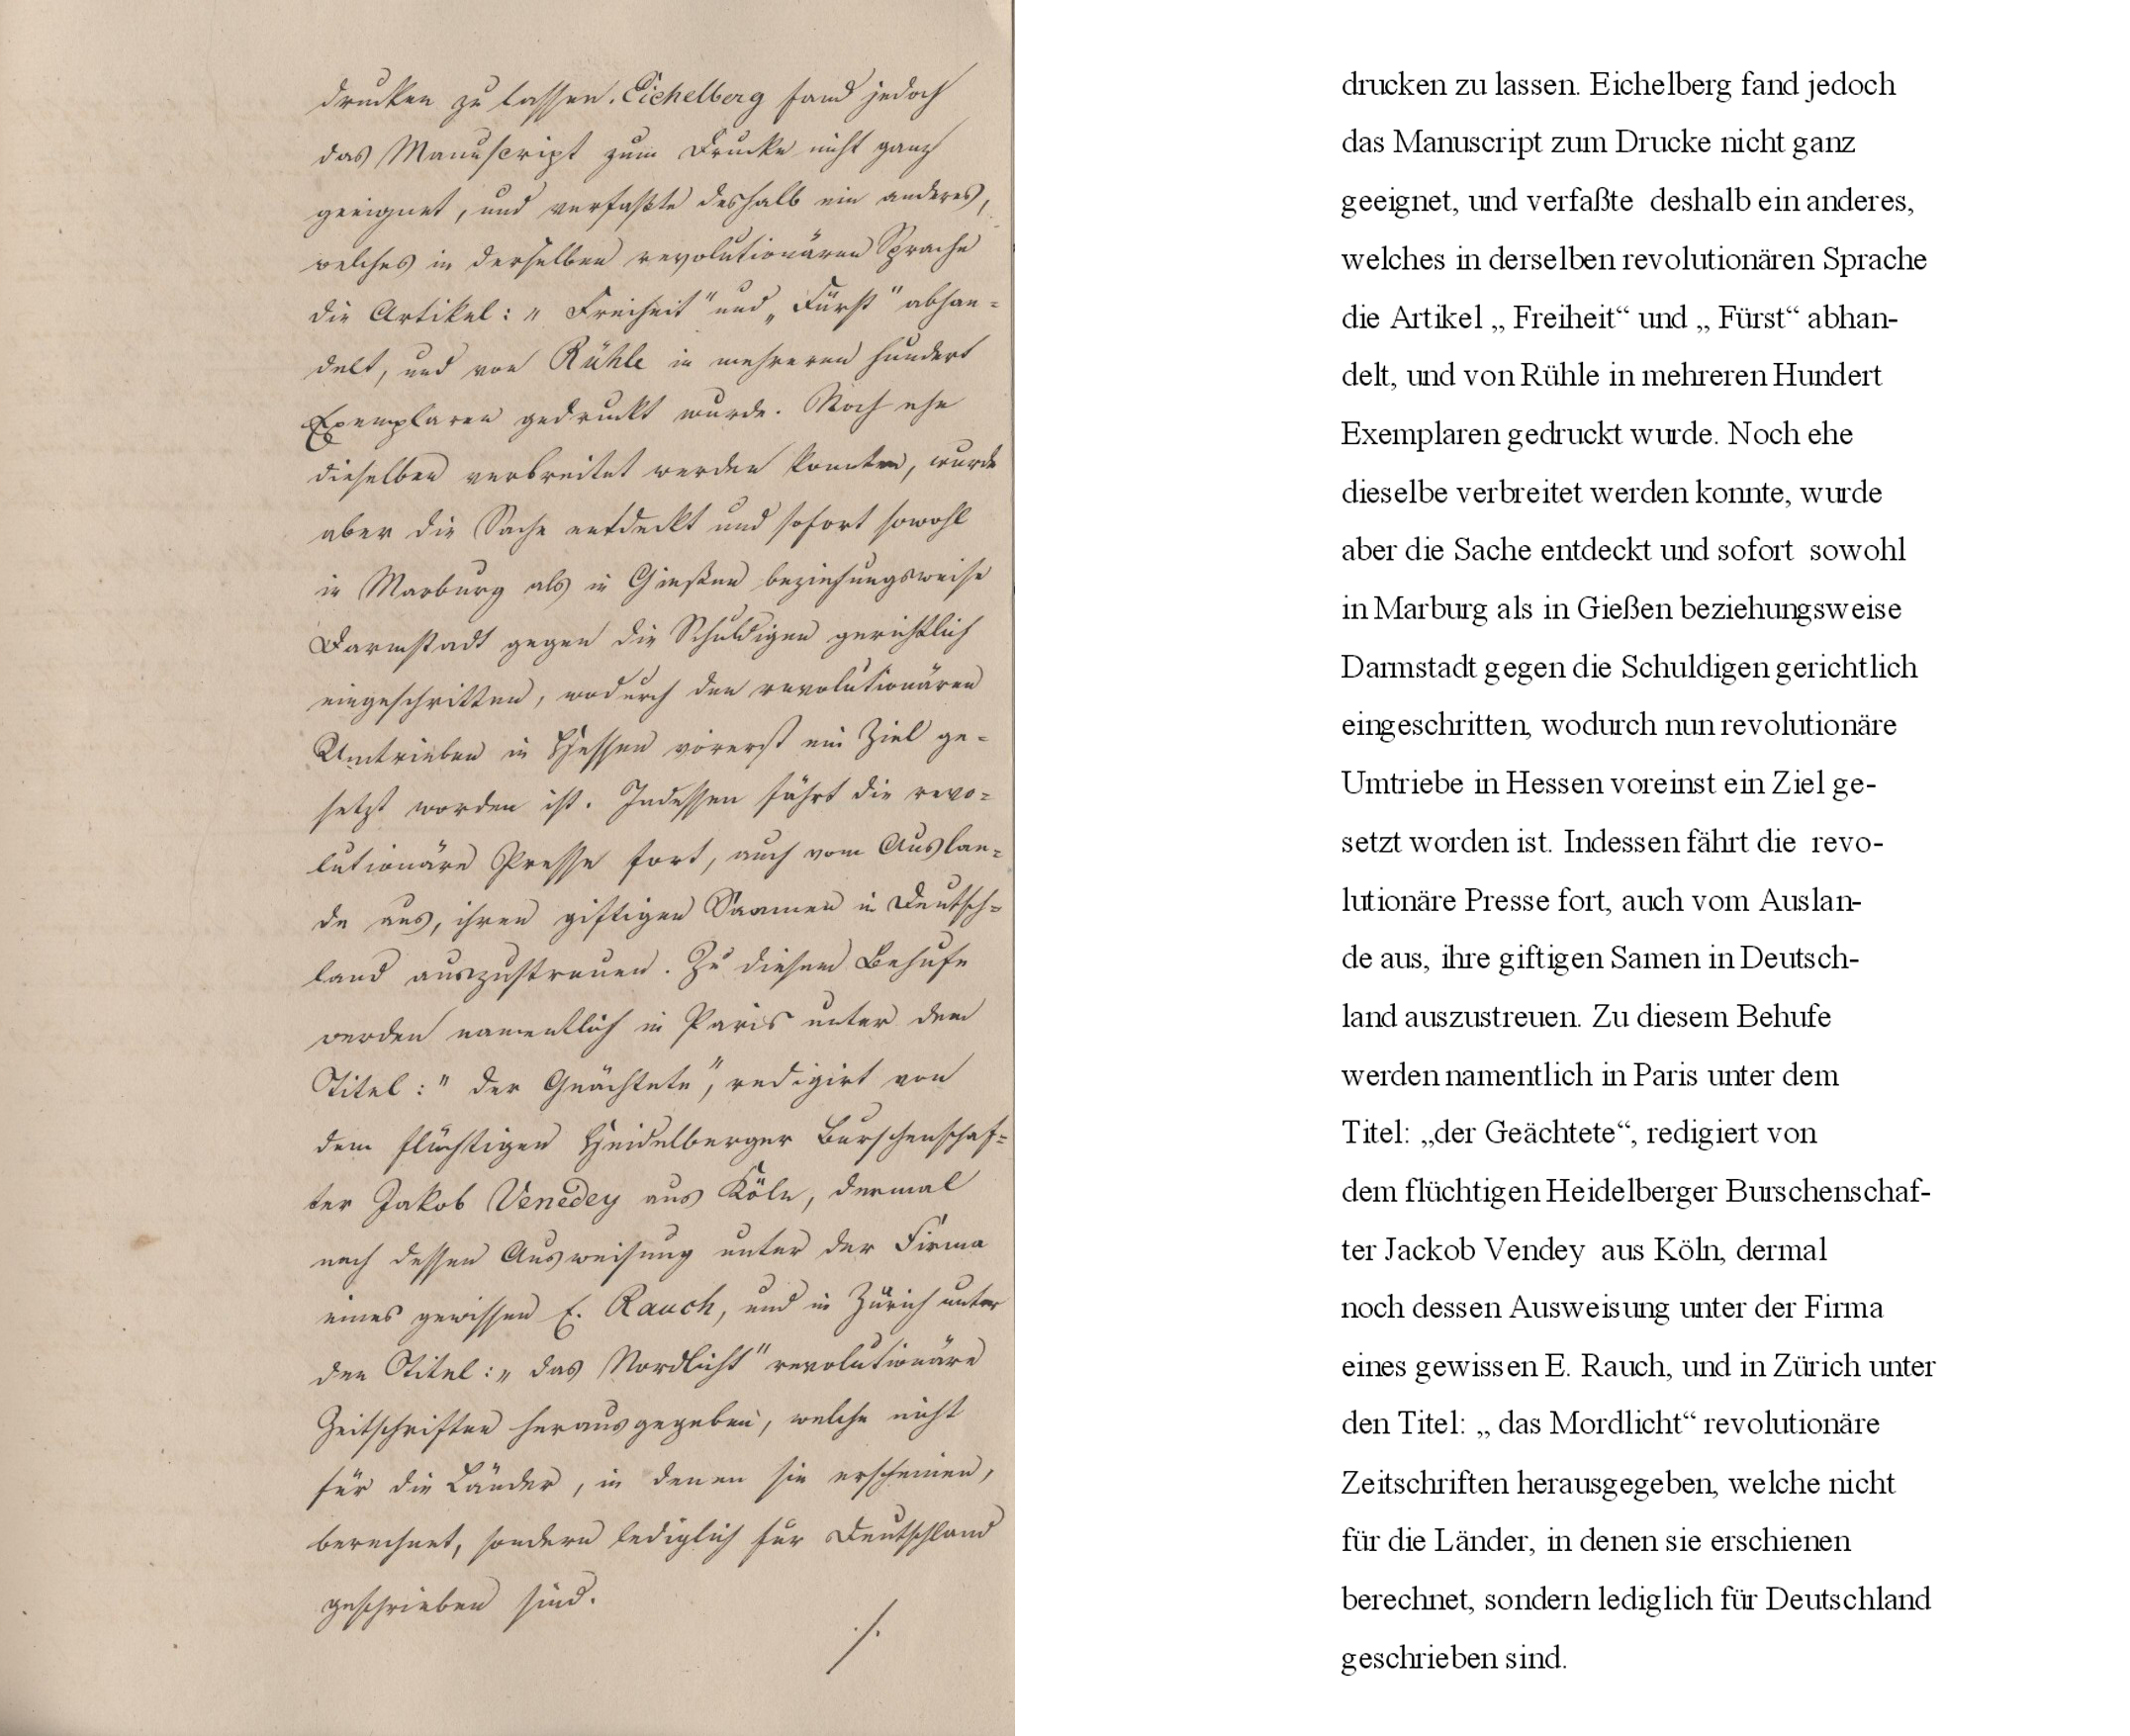 drucken zu lassen. Eichelberg fand jedoch
das Manuscript zum Drucke nicht ganz
geeignet, und verfaßte deshalb ein anderes,
welches in derselben revolutionären Sprache
die Artikel: „ Freiheit" und „ Fürst" abhan-
delt, und von Rühle in mehreren hundert
Exemplaren gedruckt wurde. Noch ehe
dieselben verbreitet werden konnten, wurde
aber die Sache entdeckt und sofort sowohl
in Marburg als in Gießen beziehungsweise
Darmstadt gegen die Schuldigen gerichtlich
eingeschritten, wodurch den revolutionären
Umtrieben in Hessen vorerst ein Ziel ge-
setzt worden ist. Indessen fährt die revo-
lutionäre Presse fort, auch vom Auslan-
de aus, ihren giftigen Saamen in Deutsch-
land auszustreuen. Zu diesem Behufe
werden namentlich in Paris unter dem
Titel: " der Geächtete", redigirt von
dem flüchtigen Heidelberger Burschenschaf-
ter Jakob Venedey aus Köln, dermal
nach dessen Ausweisung unter der Firma
eines gewissen E. Rauch, und in Zürich unter
den Titel: „ das Nordlicht" revolutionäre
Zeitschriften herausgegeben, welche nicht
für die Länder, in denen sie erscheinen,
berechnet, sondern lediglich für Deutschland
geschrieben sind.
./.
drucken zu lassen. Eichelberg fand jedoch
das Manuscript zum Drucke nicht ganz
geeignet, und verfaßte deshalb ein anderes,
welches in derselben revolutionären Sprache
die Artikel „ Freiheit“ und „ Fürst“ abhan-
delt, und von Rühle in mehreren Hundert
Exemplaren gedruckt wurde. Noch ehe
dieselbe verbreitet werden konnte, wurde
aber die Sache entdeckt und sofort sowohl
in Marburg als in Gießen beziehungsweise
Darmstadt gegen die Schuldigen gerichtlich
eingeschritten, wodurch nun revolutionäre
Umtriebe in Hessen voreinst ein Ziel ge-
setzt worden ist. Indessen fährt die revo-
lutionäre Presse fort, auch vom Auslan-
de aus, ihre giftigen Samen in Deutsch-
land auszustreuen. Zu diesem Behufe
werden namentlich in Paris unter dem
Titel: „der Geächtete“, redigiert von
dem flüchtigen Heidelberger Burschenschaf-
ter Jackob Vendey aus Köln, dermal
noch dessen Ausweisung unter der Firma
eines gewissen E. Rauch, und in Zürich unter
den Titel: „ das Mordlicht“ revolutionäre
Zeitschriften herausgegeben, welche nicht
für die Länder, in denen sie erschienen
berechnet, sondern lediglich für Deutschland
geschrieben sind.